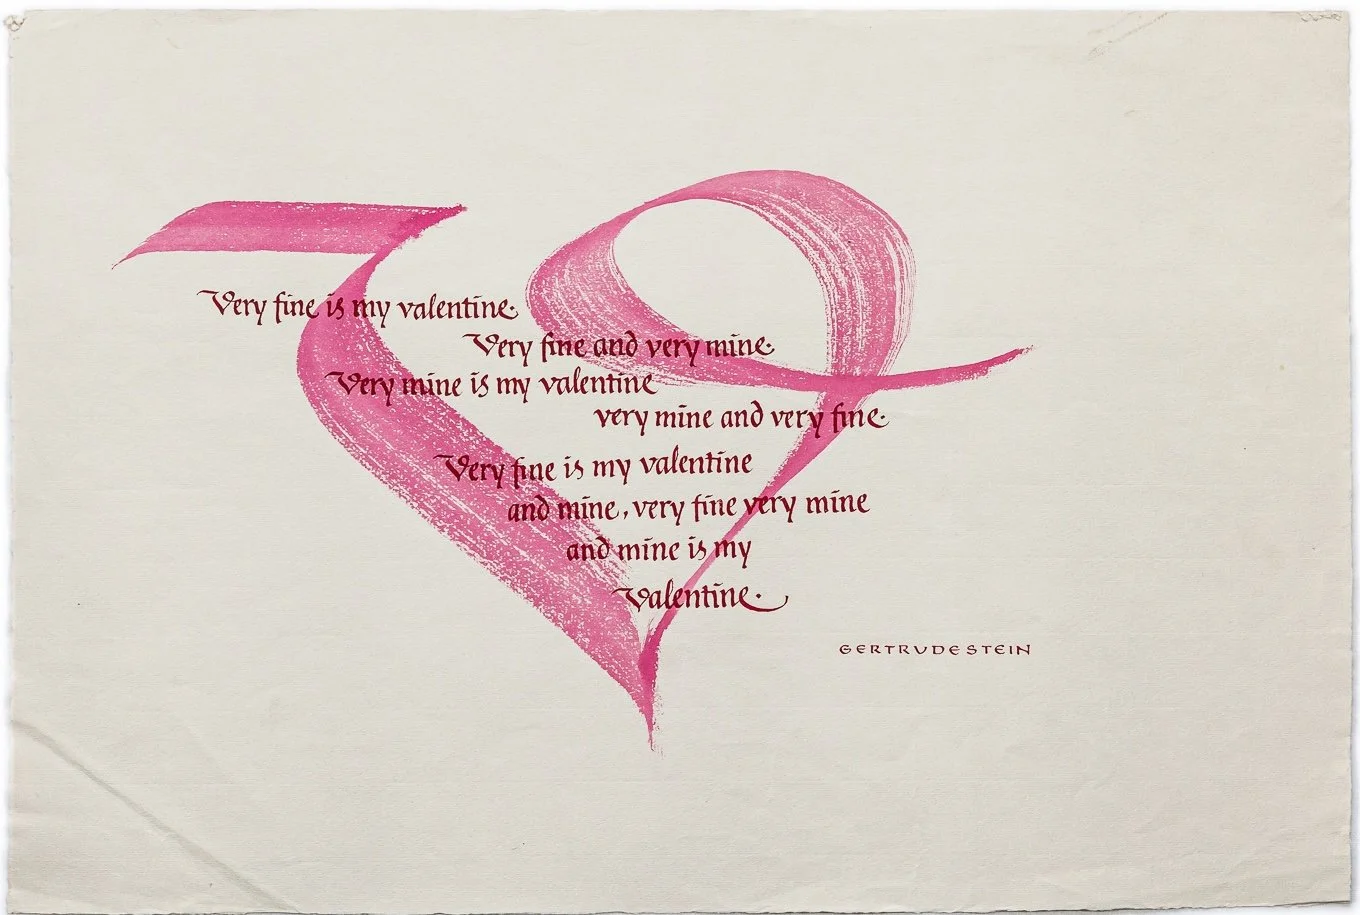 Very fine is my valentine.
Very fine and very mine.
Very mine is my valentine
very mine and very fine.
Very fine is my valentine
and mine, very fine very mine
and mine is my
Valentine.
GERTRUDE STEIN